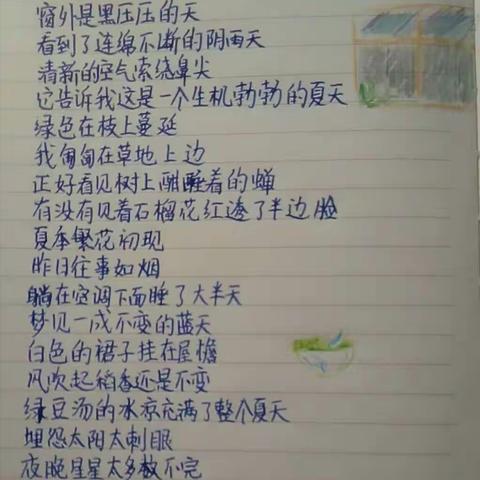 窗外是黑压压的天
看到了连绵不断的阴雨天
清新的空气萦绕鼻尖
它告诉我这是一个生机勃勃的夏天
绿色在枝上蔓延
我匍匐在草地上边
正好看见树上酣睡着的蝉
有没有见着石榴花红透了半边脸
夏季繁花初现
昨日往事如烟
躺在空调下面睡了大半天
梦见一成不变的蓝天
白色的裙子挂在屋檐
风吹起稻香还是不变
绿豆汤的冰凉充满了整个夏天
埋怨太阳太刺眼
夜晚星星太多数不完